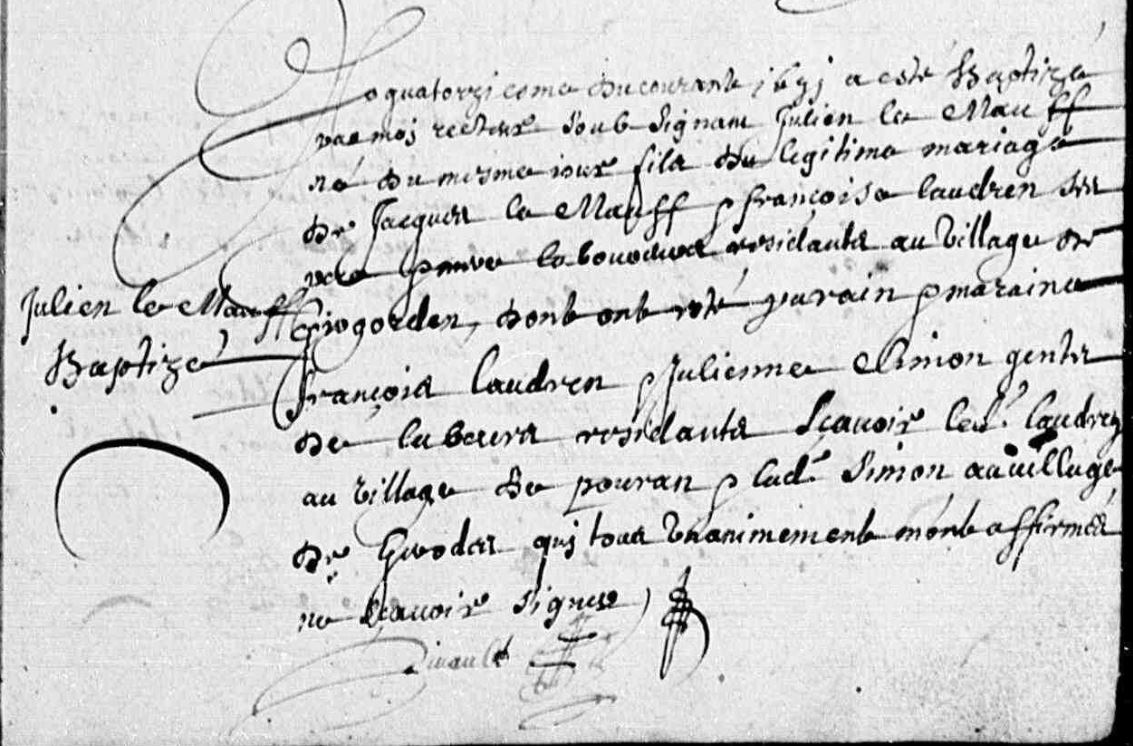 Le quatorziesme du courant 1691 a esté Baptizé
par moj recteur soub signant Julien le Mauff
né du mesme iour fils du legitime mariage
de Jacques le Mauff & françoise laudren ses
pere & mere laboureurs residants au village de
Julien le Mauff
Baptizé
dont ont esté parain & maraine
françois laudren & Julienne Simon gents
de labeurs residants sçauoir led.t laudren
au village de pouran & lad.e Simon au village
de qui tous vnanimement m'ont affirmés
ne sçauoir signer